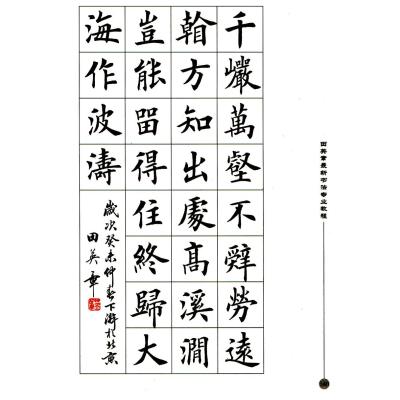 田英章最新书法专业教程
千巖萬壑不辤勞遠
看方知出處高溪澗
豈能留得住終歸大
海作波濤
歲次癸未仲春下澣於北京
田英章